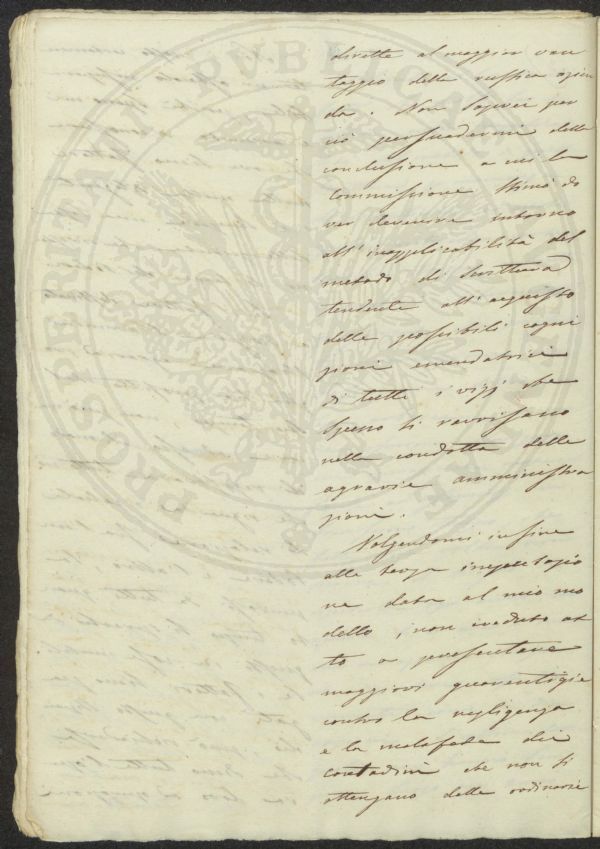 dirette al maggior van
taggio della rustica azien
da. Non saprei per
ciò persuadermi della
conclusione a cui la
Commissione stimò do
ver devenire intorno
all'inapplicabilità del
metodo di scrittura
tendente all'acquisto
delle possibili cogni
zioni emendatrici
di tutti i vizj che
spesso si ravvisano
nella condotta delle
agrarie amministra
zioni.
Volgendomi infine
alla terza imputazio
ne data al mio mo
dello, non creduto at
to a presentare
maggiori guarentigie
contro la negligenza
e la malafede dei
contadini che non si
ottengano delle ordinarie
PROSPERITATI PUBLICAE AUGENDAE